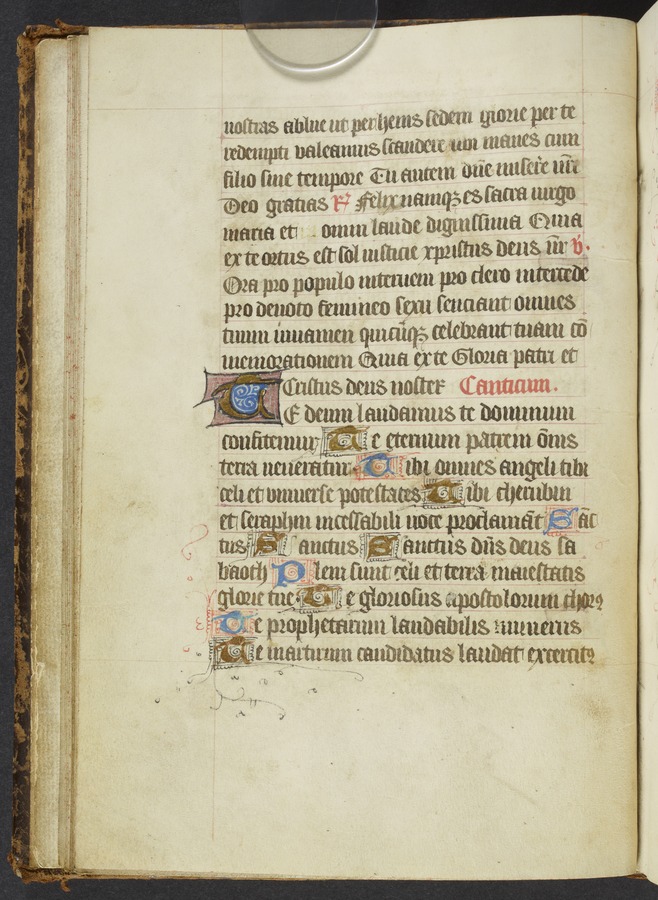 nostras ablue ut perhennis sedem glorie per te
redempti valeamus scandere ubi manes cum
filio sine tempore Tu autem dñe miserẽ nr̃i
Deo gratias R̃ Felix namqꝫ es sacra uirgo
maria et omni laude dignissima Quia
ex te ortus est sol iusticie xpristus deus nr̃ v̾.
Ora pro populo interueni pro clero intercede
pro deuoto femineo sexu senciant omnes
tuum iuuamen quicũqꝫ celebrant tuam cõ
memorationem Quia ex te Gloria patri et
Cristus deus noster Canticum.
TE deum laudamus te dominum
confitemur Te eternum patrem õnis
terra ueneratur Tibi omnes angeli tibi
celi et vniuerse potestates Tibi cherubin
et seraphin incessabili uoce proclamãt Sãc
tus Sanctus Sanctus dñs deus sa
baoth Pleni sunt celi et terra maiestatis
glorie tue Te gloriosus apostolorum chorꝰ
Te prophetarum laudabilis numerus
Te martirum candidatus laudat exercitꝰ